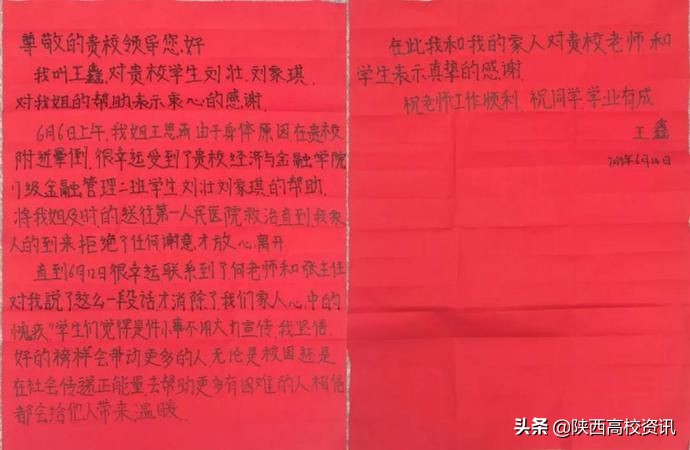 尊敬的贵校领导您好
我叫王鑫,对贵校学生刘壮.刘家琪.
对我姐的帮助表示衷心的感谢.
6月6日上午,我姐王思涵由于身体原因在贵校
附近晕倒.很幸运受到了贵校经济与金融学院
级金融管理二班学生刘壮刘家琪的帮助.
将我姐及时的送往第一人民医院救治直到我家
人的到来拒绝了任何谢意才放心离开.
直到6月12日很幸运联系到了何老师和张主任
对我说了这么一段话才消除了我们家人心中的
愧疚"学生们觉得是件小事不用大力宣传.我坚信
好的榜样会带动更多的人.无论是校园还是
在社会传递正能量.去帮助更多有困难的人相信
都会给他人带来温暖.
在此我和我的家人对贵校老师和
学生表示真挚的感谢.
祝老师工作顺利.祝同学学业有成
王鑫
6月14日
头条 @陕西高校资讯